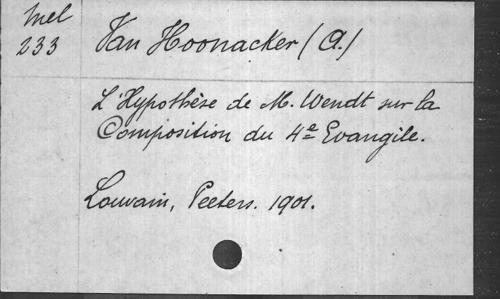 Mel
233
Van Hoonacker (A.)
L'Hypothèse de M. Wendt sur la
Composition du 4e Evangile.
Louvain, Peeters. 1901.